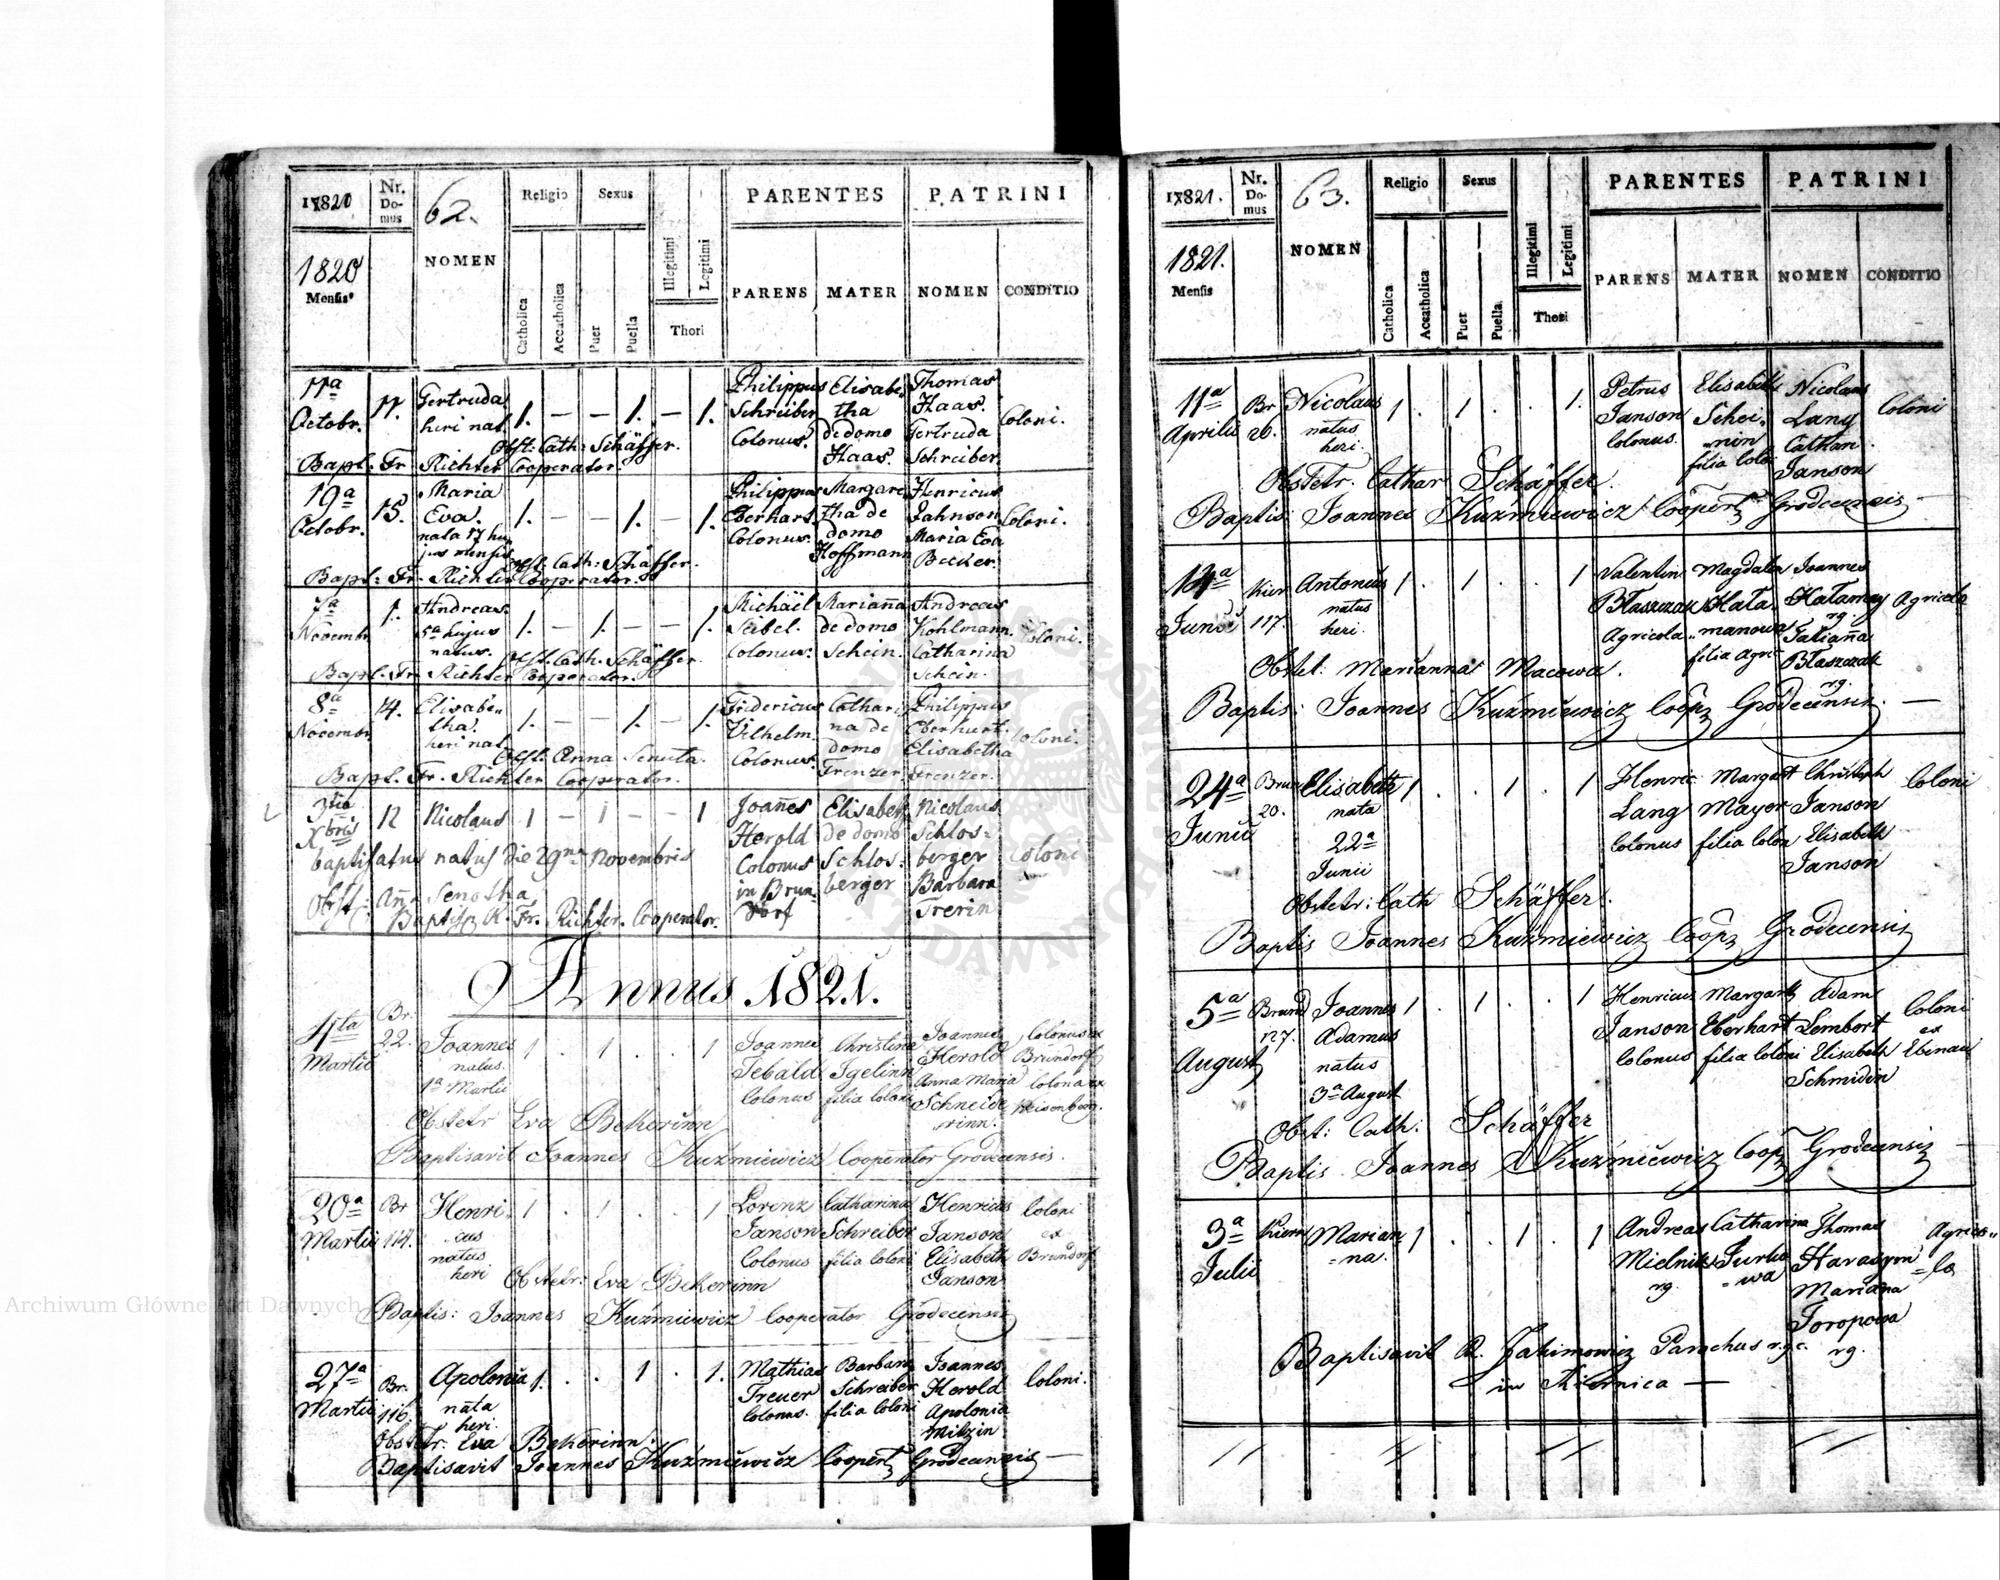 17820 Nr. Domus 62. Religio Sexus PARENTES PATRINI
1820 Mensis NOMEN Catholica Accatholica Puer Puella Illegitimi Legitimi Thori PARENS MATER NOMEN CONDITIO
11a Octobr. 11. Gertruda heri nat. 1. — — 1. — 1. Philippus Schreiber Colonus. Elisabetha de domo Haas. Thomas Haas. Gertruda Schreiber. Coloni.
Obst: Cath: Schäffer.
Bapt. Fr. Richter Cooperator.
19a Octobr. 15. Maria Eva. nata 17 hujus mensis 1. — — 1. — 1. Philippus Eberhart. Colonus. Margaretha de domo Hoffmann Henricus Jahnson Maria Eva Becker. Coloni.
Obst: Cath: Schäffer.
Bapt: Fr. Richter Cooperator.
7a Novembr. 1. Andreas. 5a hujus natus. 1. — 1. — — 1. Michäel Seibel. Colonus. Mariana de domo Schein. Andreas Kohlmann. Catharina Schein. Coloni.
Obst: Cath: Schäffer.
Bapt. Fr. Richter Cooperator.
8a Novembr. 14. Elisabetha. heri nat. 1. — — 1. — 1. Fridericus Vilhelm. Colonus. Catharina de domo Frenzer. Philippus Eberhart. Elisabetha Frenzer. Coloni.
Obst: Anna Senuta.
Bapt. Fr. Richter Cooperator.
3tia Xbris 12 Nicolaus 1 — 1 — — 1 Joañes Herold Colonus in Brundorf Elisabeth de domo Schlosberger Nicolaus Schlosberger Barbara Trerin Coloni
baptisatus natus die 29na Novembris
Obst: Anna Senotha
Baptis. R. Fr. Richter. Cooperator.
Annus 1821.
4ta Martii Br. 22. Joannes natus. 1a Martii 1 . 1 . . 1 Joannes Tebald Colonus Christina Igelinn filia coloni Joannes Herold Anna Maria Schneiderinn. Colonus ex Brundorf colona ex Weisenberg.
Obstetr Eva Bekerinn
Baptisavit Joannes Kuźmiewicz Cooperator Grodecensis.
20a Martii Br 114. Henricus natus heri 1 . 1 . . 1 Lorenz Janson Colonus Catharina Schreiber filia coloni Henricus Janson Elisabeth Janson Coloni ex Brundorf
Obstetr: Eva Bekerinn
Baptis: Joannes Kuźmiewicz Cooperator Grodecensis
27a Martii Br. 116. Apolonia nata heri 1. . . 1 . 1. Mathias Treuer colonus. Barbara Schreiber filia coloni Joannes Herold Apolonia Milzin Coloni.
Obstetr. Eva Bekerinn.
Baptisavit Joannes Kuźmiewicz Coopert Grodecensis —
17821. Nr. Domus 63. Religio Sexus PARENTES PATRINI
1821. Mensis NOMEN Catholica Accatholica Puer Puella Illegitimi Legitimi Thori PARENS MATER NOMEN CONDITIO
11a Aprilis Br 26. Nicolaus natus heri. 1 . 1 . . 1. Petrus Janson colonus. Elisabeth Scheinin filia colo Nicolaus Lang Cathar. Janson Coloni
Obstetr. Cathar Schäffer.
Baptis: Joannes Kuźmiewicz Coopert Grodecensis —
14a Junii Kier 117. Antonius natus heri. 1 . 1 . . 1 Valentin Błaszczak Agricola Magdalena Hałamanowa filia Agri Joannes Hałamay rg. Tatiana Błaszczak rg. Agricola
Obstet: Marianna Macowa.
Baptis: Joannes Kuźmiewicz Coopr Grodecensis. —
24a Junii Brun 20. Elisabeth nata 22a Junii 1 . . 1 . 1 Henric Lang colonus Margart Mayer filia colon Christoph Janson Elisabeth Janson Coloni
Obstetr: Cath Schäffer.
Baptis Joannes Kuźmiewicz Coopr Grodecensis
5a August Brund 127. Joannes Adamus natus 3a August 1 . 1 . . 1 Henricus Janson colonus Margart Eberhart filia coloni Adam Lembort Elisabeth Schmidin Coloni ex Ebenau
Obst: Cath: Schäffer
Baptis Joannes Kuźmiewicz Coopr Grodecensis —
3a Julii Kiern Marianna. 1 . . 1 . 1 Andreas Mielnik rg. Catharina Thomas Harasym Mariana Toropowa rg. Agricola
Baptisavit R. Jakimowicz Parochus r.g.c.
in Kiernica —
Archiwum Główne Akt Dawnych